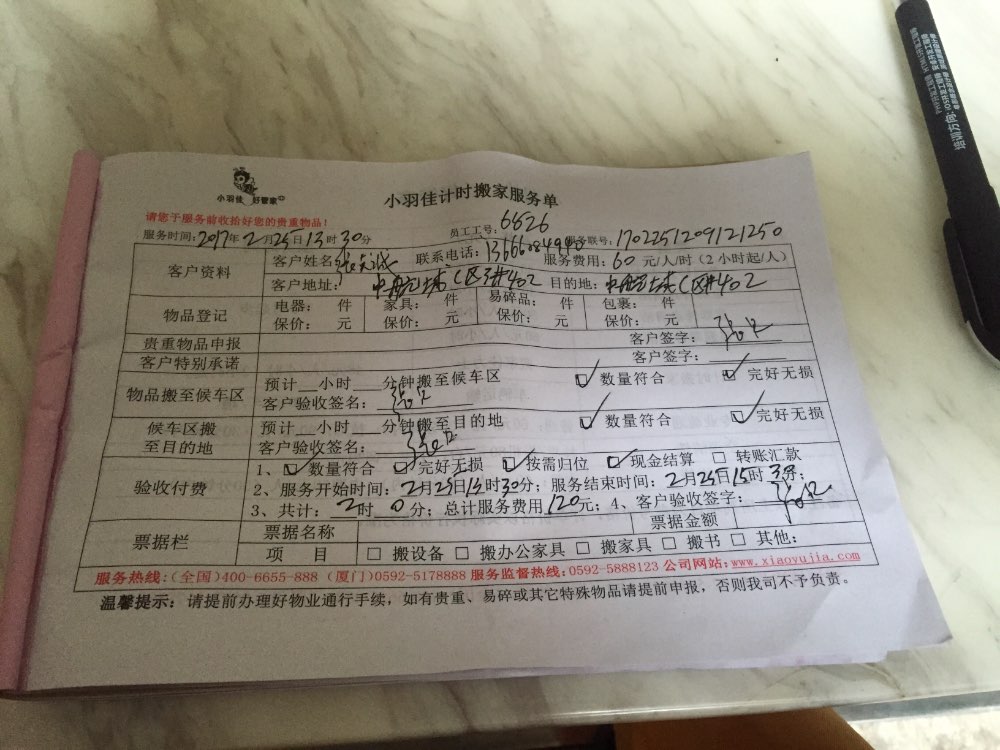 小羽佳 好管家
小羽佳计时搬家服务单
请您于服务前收拾好您的贵重物品!
员工工号: 6626
服务时间: 2017年2月25日13时30分
服务联号: 1702251209121250
客户资料
客户姓名 联系电话: 服务费用: 60 元/人/时 (2小时起/人)
客户地址: 402 目的地: 402
物品登记
电器: 件 家具: 件 易碎品: 件 包裹: 件
保价: 元 保价: 元 保价: 元 保价: 元
贵重物品申报 客户签字:
客户特别承诺 客户签字:
物品搬至候车区
预计__小时___分钟搬至候车区 ☑ 数量符合 ☑ 完好无损
客户验收签名:
候车区搬至目的地
预计__小时___分钟搬至目的地 ☑ 数量符合 ☑ 完好无损
客户验收签名:
验收付费
1、☑ 数量符合 ☑ 完好无损 ☑ 按需归位 ☑ 现金结算 □ 转账汇款
2、服务开始时间: 2月25日13时30分; 服务结束时间: 2月25日15时30分;
3、共计: 2时 0分; 总计服务费用120元; 4、客户验收签字:
票据栏
票据名称 票据金额
项 目 □ 搬设备 □ 搬办公家具 □ 搬家具 □ 搬书 □ 其他:
服务热线:(全国)400-6655-888 (厦门)0592-5178888 服务监督热线:0592-5888123 公司网站:www.xiaoyujia.com
温馨提示: 请提前办理好物业通行手续,如有贵重、易碎或其它特殊物品请提前申报,否则我司不予负责。